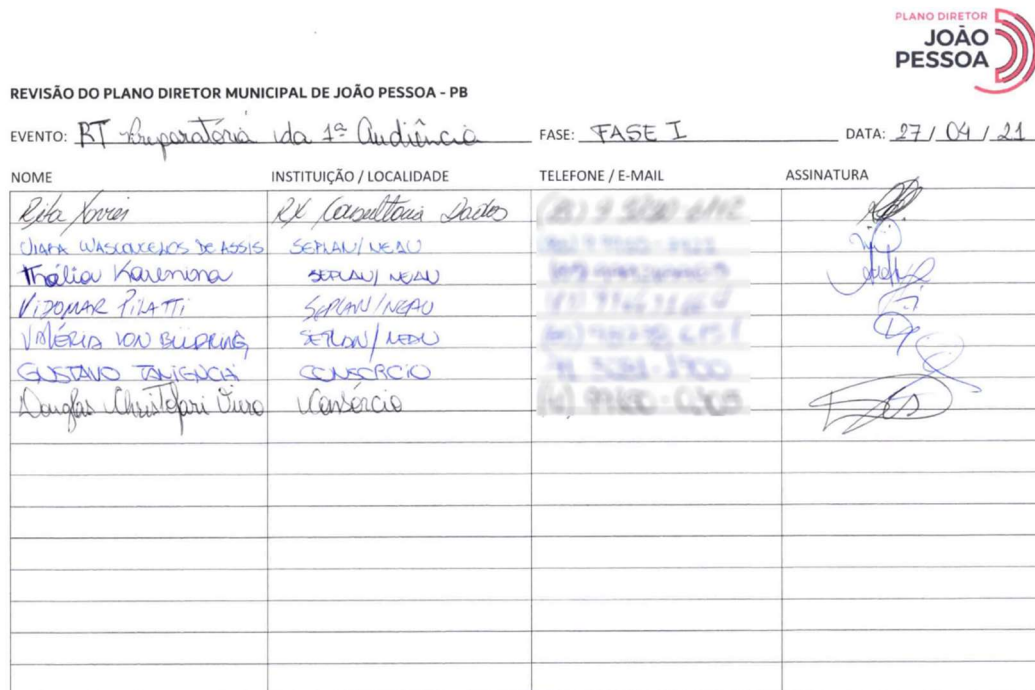 PLANO DIRETOR
JOÃO
PESSOA
REVISÃO DO PLANO DIRETOR MUNICIPAL DE JOÃO PESSOA - PB
EVENTO: RT Preparatória da 1ª Audiência FASE: FASE I DATA: 27/04/21
NOME INSTITUIÇÃO / LOCALIDADE TELEFONE / E-MAIL ASSINATURA
Rita Xavier RX Consultoria Dados
VASCONCELOS DE ASSIS SEPLAN/NEAU
Thália Karenina SEPLAN/NEAU
VIDOMAR PILATTI SEPLAN/NEAU
VALÉRIA VON SEPLAN/NEAU
GUSTAVO TANIGUCHI CONSORCIO
Douglas Christofari Viero Consórcio